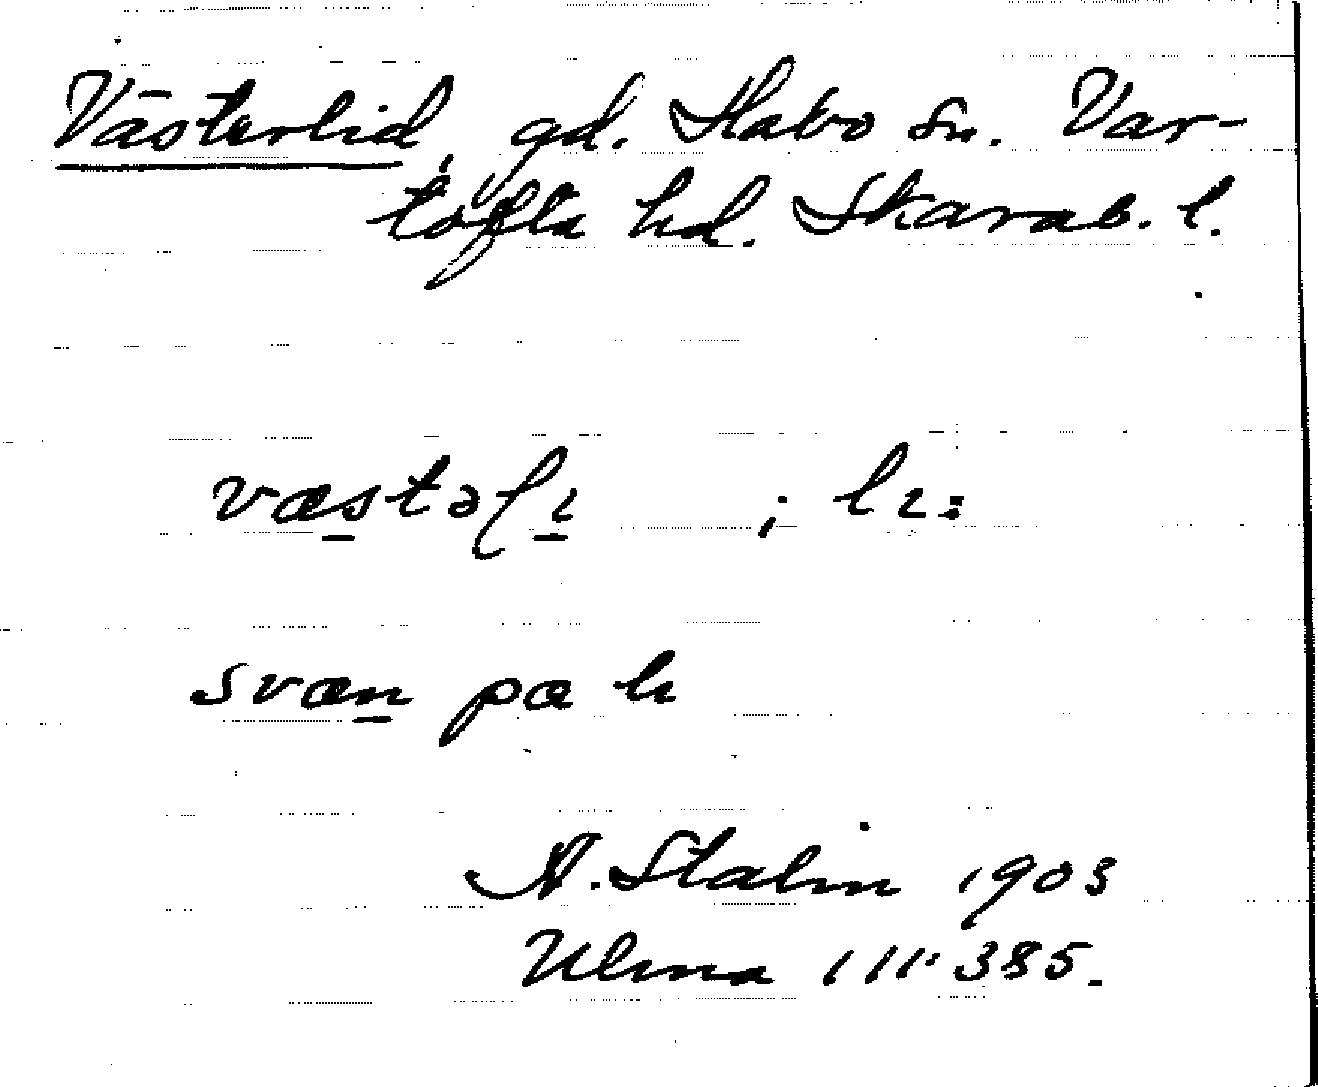 Västerlid, gd. Habo sn. Var-
tofta hd. Skarab. l.
væstəlı ; lı:
svæn pa lı
A. Stalin 1903
Ulma 111:385.